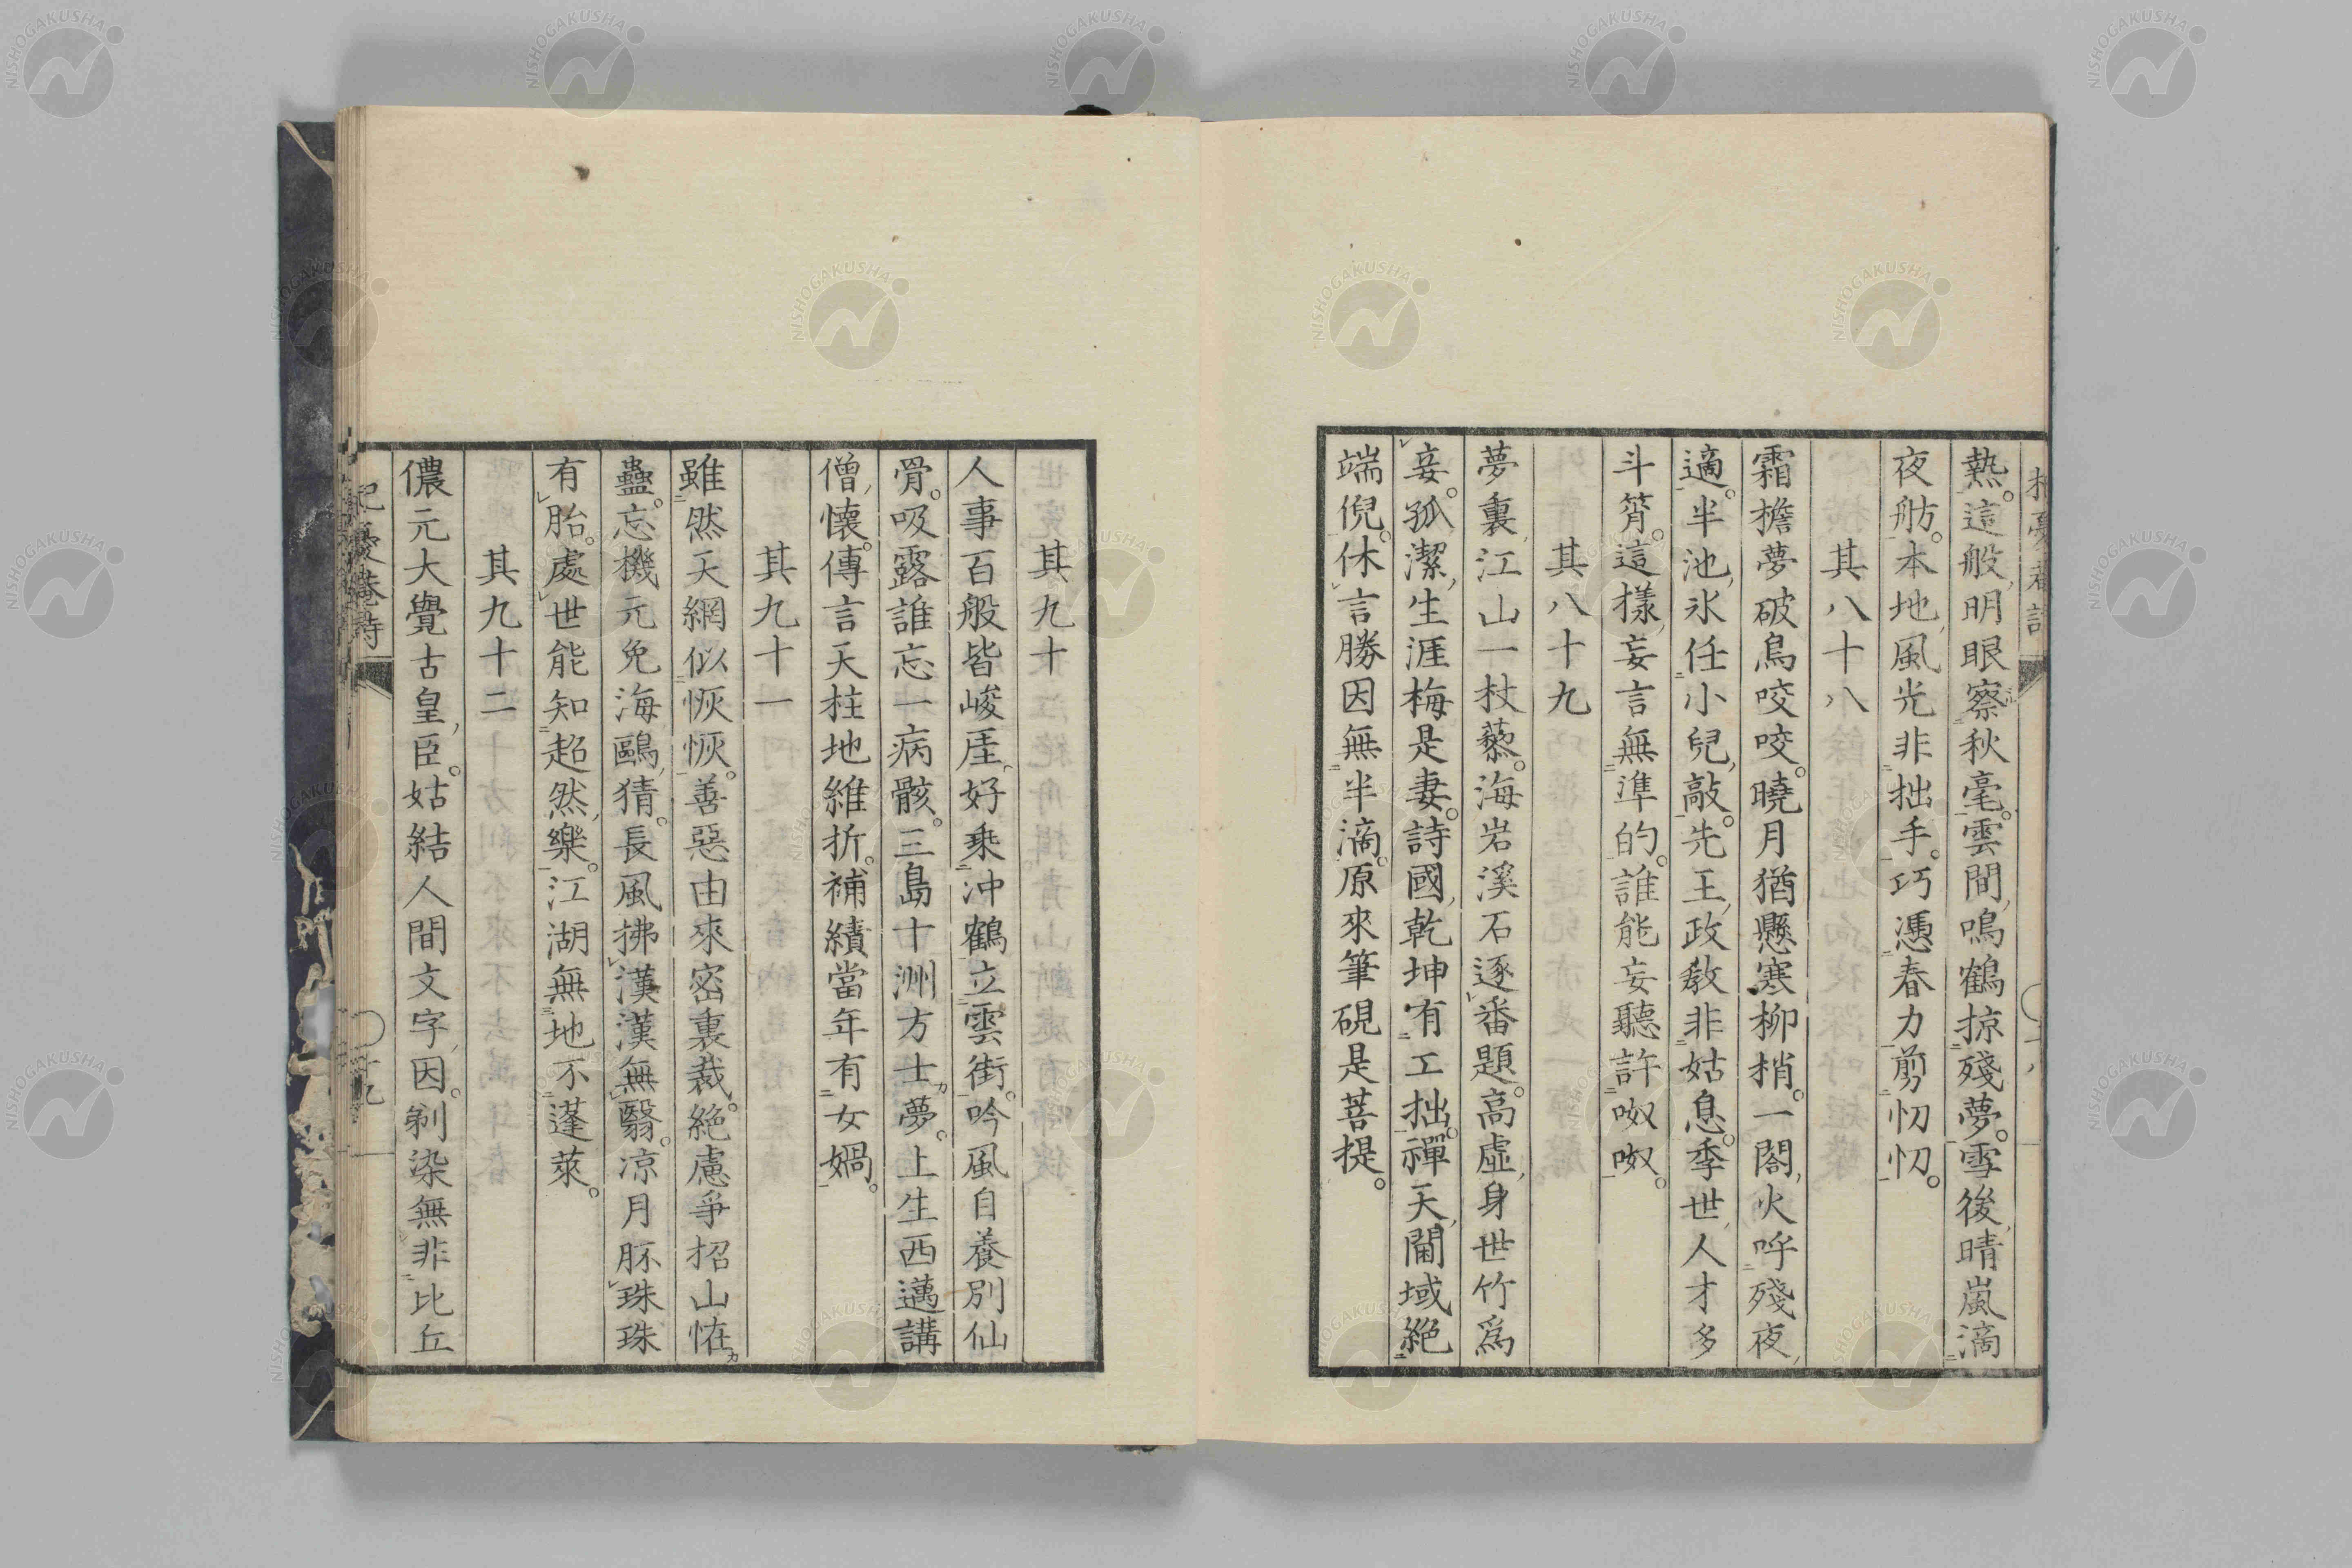 熱。這般明眼察秋毫。雲間鳴鶴掠殘夢。雪後晴嵐滴
夜舫。本地風光非拙手。巧憑春力剪忉忉。
其八十八
霜檐夢破鳥咬咬。曉月猶懸寒柳梢。一閤火呼殘夜
適。半池氷任小兒敲。先王政教非姑息。季世人才多
斗筲。這樣妄言無準的。誰能妄聽許呶呶。
其八十九
夢裏江山一杖藜。海岩溪石逐番題。高虛身世竹爲
妾。孤潔生涯梅是妻。詩國乾坤有工拙。禪天閫域絶
端倪。休言勝因無半滴。原來筆硯是菩提。
其九十
人事百般皆峻崖。好乗冲鶴立雲街。吟風自養別仙
骨。吸露誰忘一病骸。三島十洲方士夢。上生西邁講
僧懷。傳言天柱地維折。補績當年有女媧。
其九十一
雖然天網似恢恢。善惡由來密裏裁。絶慮爭招山恠
蠱。忘機元免海鷗猜。長風拂漢漢無翳。凉月胚珠珠
有胎。處世能知超然樂。江湖無地不蓬萊。
其九十二
儂元大覺古皇臣。姑結人間文字因。剃染無非比丘
十九
NISHOGAKUSHA